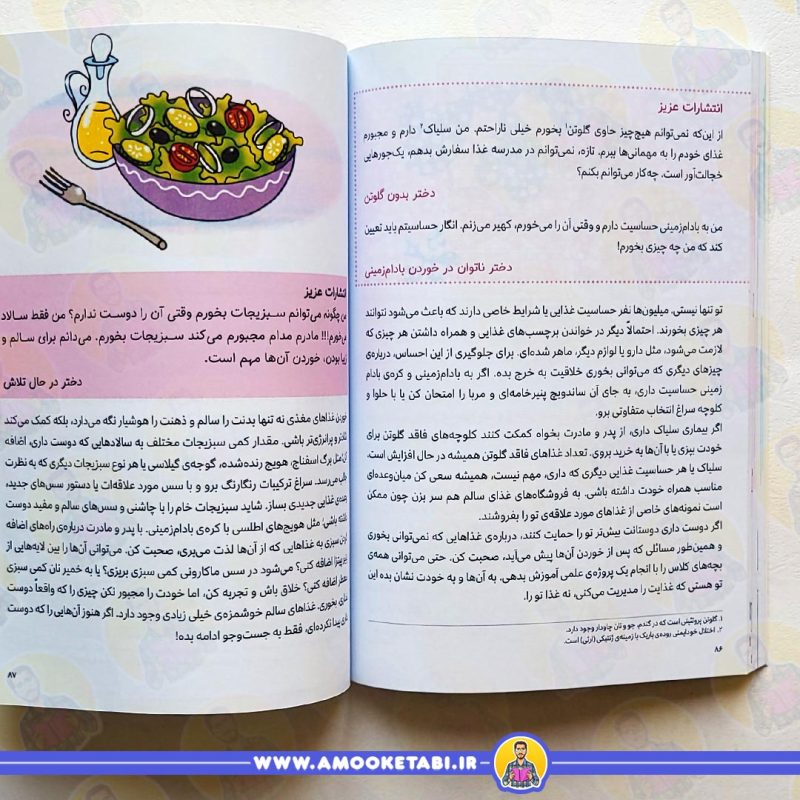 انتشارات عزیز
از این‌که نمی‌توانم هیچ‌چیز حاوی گلوتن۱ بخورم خیلی ناراحتم. من سلیاک۲ دارم و مجبورم
غذای خودم را به مهمانی‌ها ببرم. تازه، نمی‌توانم در مدرسه غذا سفارش بدهم، یک‌جورهایی
خجالت‌آور است. چه‌کار می‌توانم بکنم؟
دختر بدون گلوتن
من به بادام‌زمینی حساسیت دارم و وقتی آن را می‌خورم، کهیر می‌زنم. انگار حساسیتم باید تعیین
کند که من چه چیزی بخورم!
دختر ناتوان در خوردن بادام‌زمینی
تو تنها نیستی، میلیون‌ها نفر حساسیت غذایی یا شرایط خاصی دارند که باعث می‌شود نتوانند
هر چیزی بخورند. احتمالاً دیگر در خواندن برچسب‌های غذایی و همراه داشتن هر چیزی که
لازمت می‌شود، مثل دارو یا لوازم دیگر، ماهر شده‌ای. برای جلوگیری از این احساس، درباره‌ی
چیزهای دیگری که می‌توانی بخوری خلاقیت به خرج بده. اگر به بادام‌زمینی و کره‌ی بادام
زمینی حساسیت داری، به جای آن ساندویچ پنیرخامه‌ای و مربا را امتحان کن یا با حلوا و
کلوچه سراغ انتخاب متفاوتی برو.
اگر بیماری سلیاک داری، از پدر و مادرت بخواه کمکت کنند کلوچه‌های فاقد گلوتن برای
خودت بپزی یا با آن‌ها به خرید بروی. تعداد غذاهای فاقد گلوتن همیشه در حال افزایش است،
سلیاک یا هر حساسیت غذایی دیگری که داری، مهم نیست، همیشه سعی کن میان‌وعده‌ای
مناسب همراه خودت داشته باشی. به فروشگاه‌های غذای سالم هم سر بزن چون ممکن
است نمونه‌های خاصی از غذاهای مورد علاقه‌ی تو را بفروشند.
اگر دوست داری دوستانت بیش‌تر تو را حمایت کنند، درباره‌ی غذاهایی که نمی‌توانی بخوری
و همین‌طور مسائلی که پس از خوردن آن‌ها پیش می‌آید، صحبت کن. حتی می‌توانی همه‌ی
بچه‌های کلاس را با انجام یک پروژه‌ی علمی آموزش بدهی. به آن‌ها و به خودت نشان بده این
تو هستی که غذایت را مدیریت می‌کنی، نه غذا تو را.
۱. گلوتن پروتئینی است که در گندم، جو و نان چاودار وجود دارد.
۲. اختلال خودایمنی روده‌ی باریک با زمینه‌ی ژنتیکی (ارثی) است.
۸۶
انتشارات عزیز
من چگونه می‌توانم سبزیجات بخورم وقتی آن را دوست ندارم؟ من فقط سالاد
می‌خورم!!! مادرم مدام مجبورم می‌کند سبزیجات بخورم. می‌دانم برای سالم و
زیبا بودن، خوردن آن‌ها مهم است.
دختر در حال تلاش
خوردن غذاهای مغذی نه تنها بدنت را سالم و ذهنت را هوشیار نگه می‌دارد، بلکه کمک می‌کند
شادتر و پرانرژی‌تر باشی. مقدار کمی سبزیجات مختلف به سالادهایی که دوست داری، اضافه
کن مثل برگ اسفناج، هویج رنده‌شده، گوجه‌ی گیلاسی یا هر نوع سبزیجات دیگری که به نظرت
می‌رسد. سراغ ترکیبات رنگارنگ برو و با سس مورد علاقه‌ات یا دستور سس‌های جدید،
غذایی جدیدی بساز. شاید سبزیجات خام را با چاشنی و سس‌های سالم و مفید دوست
داشته باشی؛ مثل هویج‌های اطلسی با کره‌ی بادام‌زمینی. با پدر و مادرت درباره‌ی راه‌های اضافه
کردن سبزی به غذاهایی که از آن‌ها لذت می‌بری، صحبت کن. می‌توانی آن‌ها را بین لایه‌هایی از
پیتزا اضافه کنی؟ می‌شود در سس ماکارونی کمی سبزی بریزی؟ یا به خمیر نان کمی سبزی
معطر اضافه کنی؟ خلاق باش و تجربه کن، اما خودت را مجبور نکن چیزی را که واقعاً دوست
نداری، بخوری. غذاهای سالم خوشمزه‌ی خیلی زیادی وجود دارد. اگر هنوز آن‌هایی را که دوست
داری پیدا نکرده‌ای، فقط به جست‌وجو ادامه بده!
۸۷
WWW.AMOOKETABI.IR